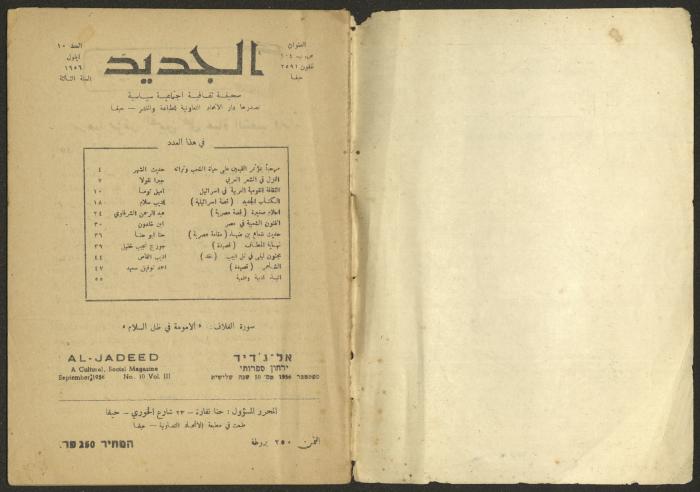 العدد ١٠
ايلول
١٩٥٦
السنة الثالثة
الجديد
العنوان
ص. ب. ١٠٤
تلفون ٢٥٩١
حيفا
صحيفة ثقافية اجتماعية سياسية
تصدرها دار الاتحاد التعاونية للطباعة والنشر – حيفا
في هذا العدد
مرحباً بمؤتمر القيمين على حياة الشعب وتراثه حديث الشهر ٤
الغزل في الشعر العربي جبرا نقولا ٧
الثقافة القومية العربية في اسرائيل اميل توما ١٠
الكتاب الجديد ( قصة اسرائيلية ) سلام ١٨
احلام صغيرة ( قصة مصرية ) عبد الرحمن الشرقاوي ٢٤
الفنون الشعبية في مصر ابن خلدون ٣٠
حديث ( مقامة مصرية ) حنا ابو حنا ٣٦
نهاية المطاف ( قصيدة ) جورج نجيب خليل ٣٩
مجنون ليلى في تل ابيب ( نقد ) اديب القاص ٤٤
الشاعر ( قصيدة ) توفيق سعيد ٤٧
ادبية وعلمية ٥٥
صورة الغلاف: « الامومة في ظل السلام »
AL-JADEED
A Cultural, Social Magazine
September, 1956 No. 10 Vol. III
אל-ג'דיד
ירחון ספרותי
ספטמבר 1956 מס' 10 שנה שלישית
المحرر المسؤول: حنا نقارة – ٢٣ شارع الخوري – حيفا
طبعت في مطبعة الاتحاد التعاونية – حيفا
الثمن ٢٥٠ بروطة
המחיר 250 פר.